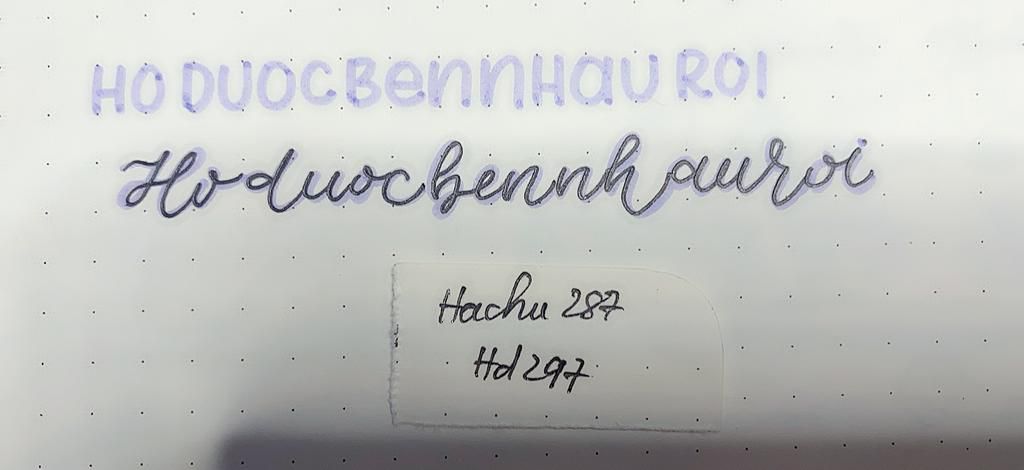 HODUOCBennHAU ROI
Hoduocbennhauroi
Hachu 287
Hd297